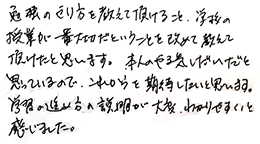 勉強のやり方を教えて頂けること、学校の
授業が一番大切だということを改めて教えて
頂けたと思います。本人のやる気しだいだと
思っているので、これからを期待したいと思います。
学習の進め方の説明が大変わかりやすくと
感じました。